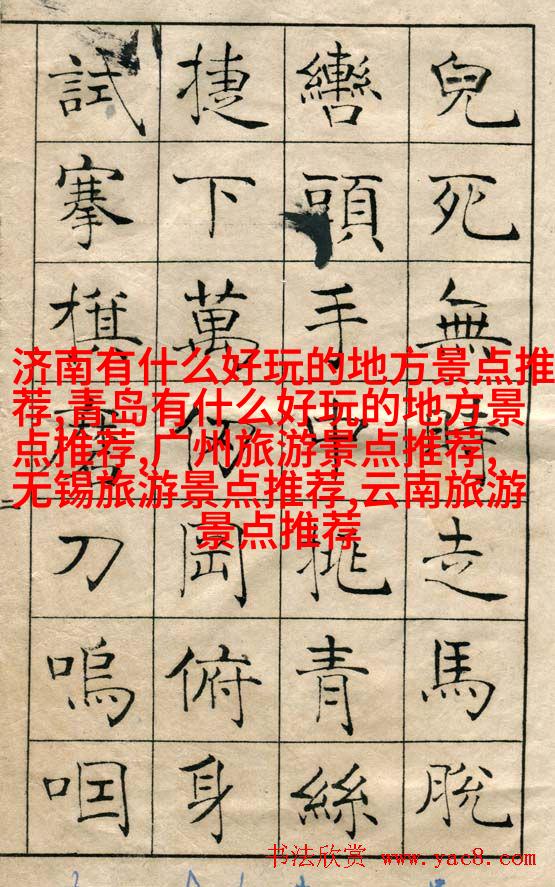 兒死無時走馬脫
轡頭手中挑青絲
捷下萬仞岡俯身
試搴旗磨刀嗚咽
济南有什么好玩的地方景点推
荐,青岛有什么好玩的地方景
点推荐,广州旅游景点推荐,
无锡旅游景点推荐,云南旅游
景点推荐
书法欣赏 www.yac8.com